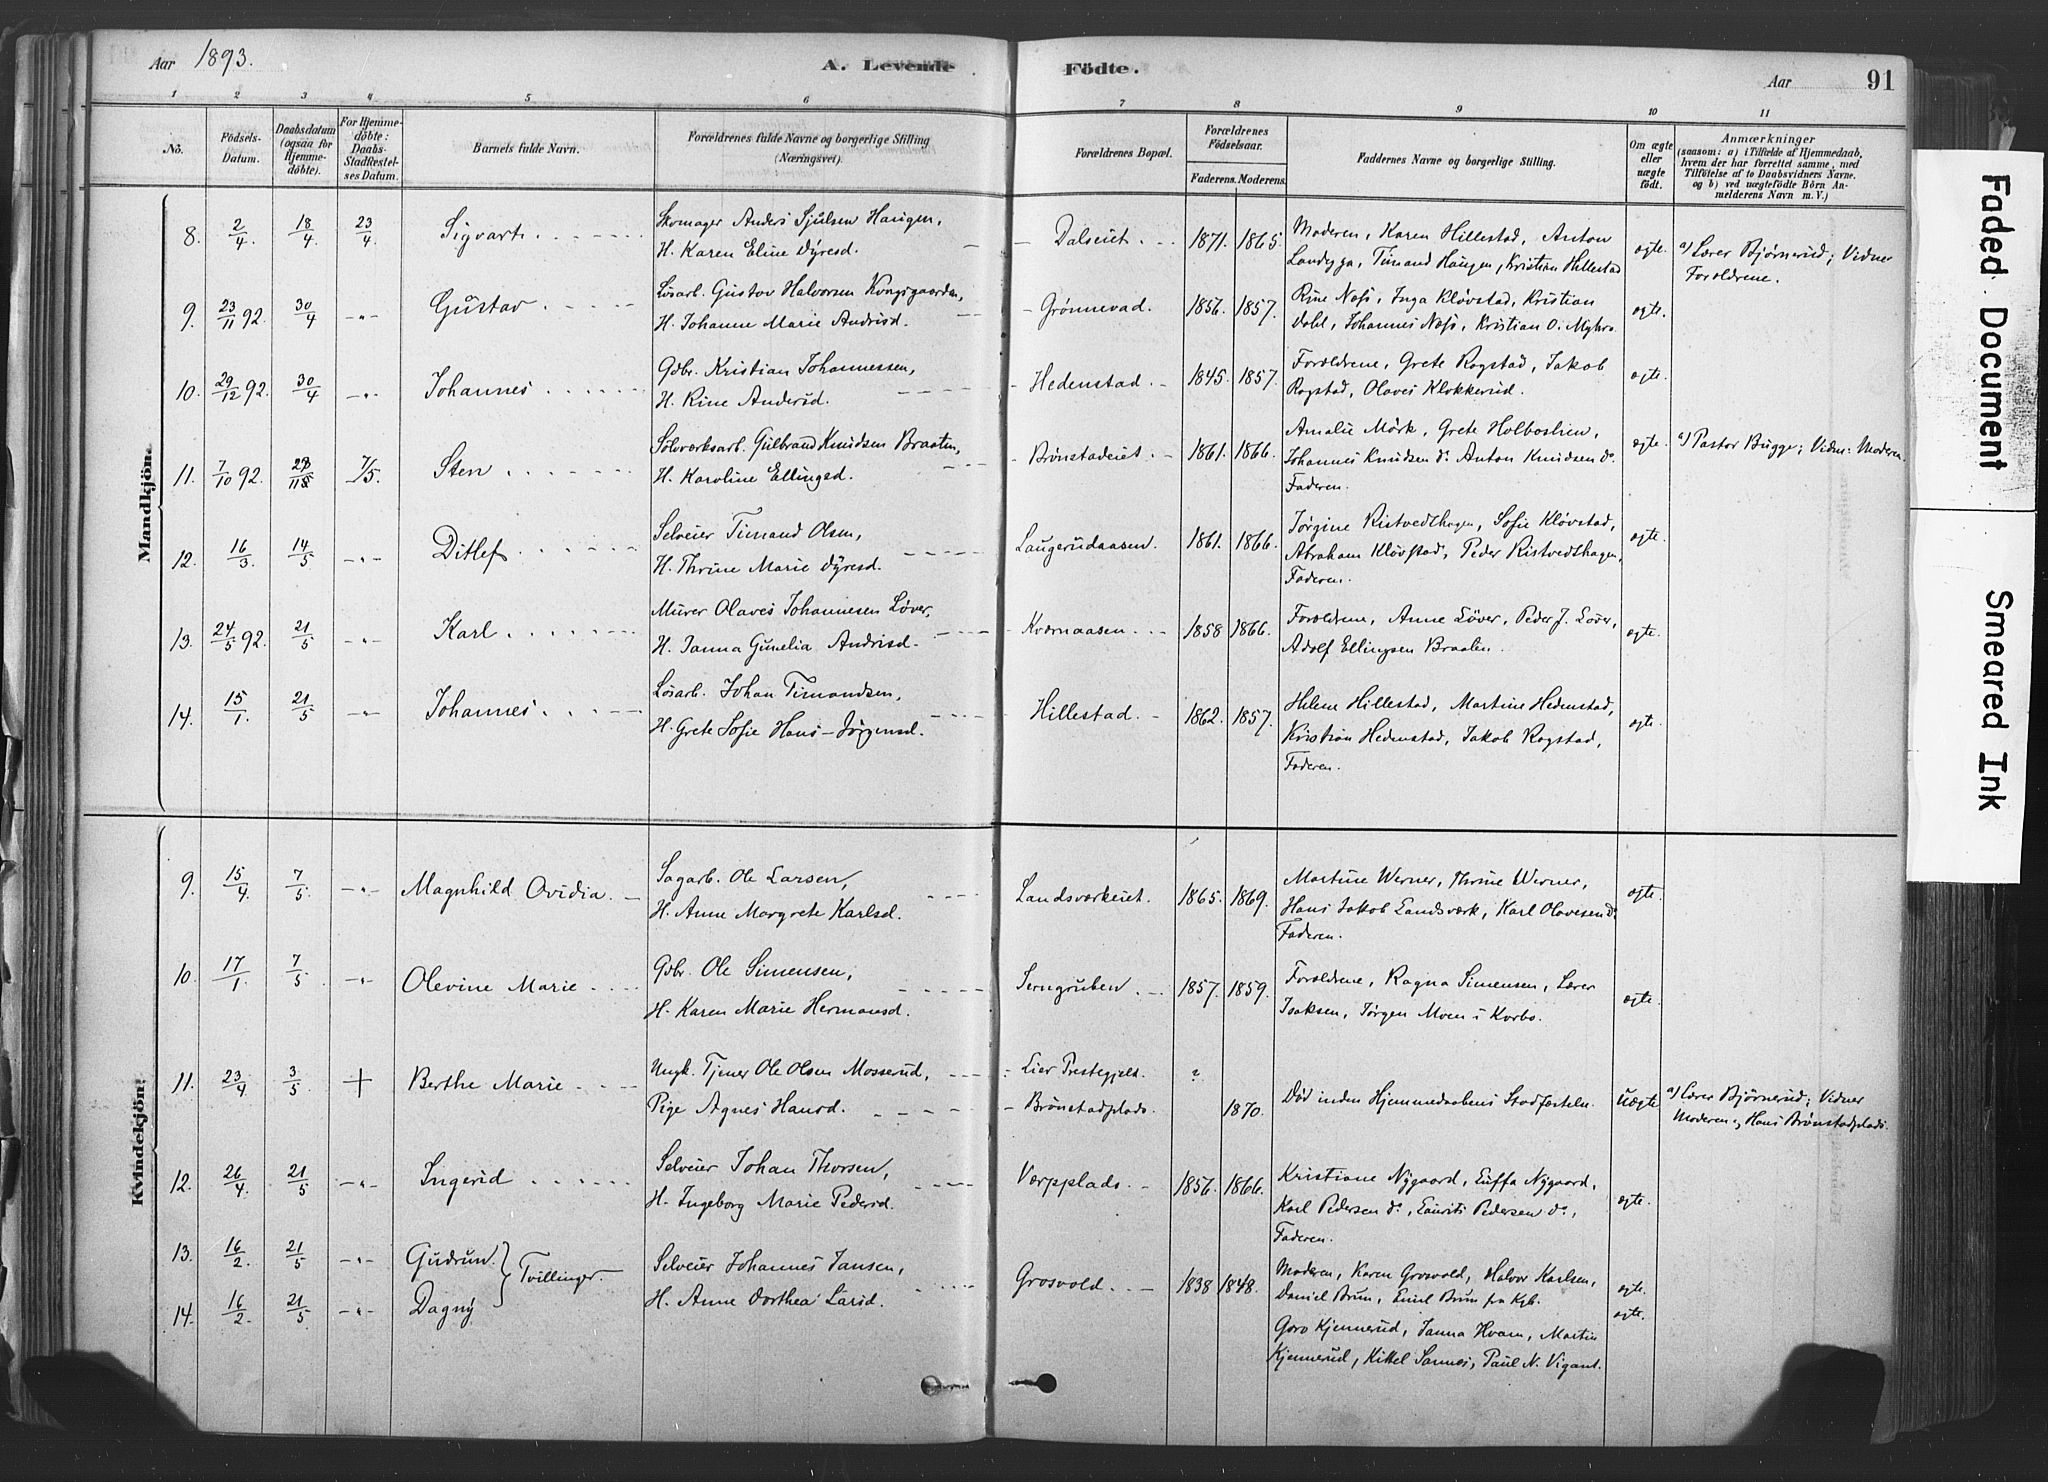 Aar 1893.
A. Levende Födte.
Aar 91
1 2 3 4 5 6 7 8 9 10 11
No.
Födsels-
Datum.
Daabsdatum
(ogsaa for
Hjemme-
döbte).
For Hjemme-
döbte:
Daabs-
Stadfæstel-
ses Datum.
Barnets fulde Navn.
Forældrenes fulde Navne og borgerlige Stilling
(Næringsvei).
Forældrenes Bopæl.
Forældrenes
Födselsaar.
Faderens. Moderens.
Faddernes Navne og borgerlige Stilling.
Om ægte
eller
uægte
födt.
Anmærkninger
(saasom: a) i Tilfælde af Hjemmedaab,
hvem der har forrettet samme, med
Tilföielse af to Daabsvidners Navne.
og b) ved uægtefödte Börn An-
melderens Navn m. V.)
Mandkjön.
8. 2/4 18/4 23/4 Sigvart. Skomager Anders Sjulsen Haugen,
H. Karen Eline Dyresd. Dalseiet. 1871. 1865. Moderen, Karen Hillestad, Anton
Landyga, Timand Haugen, Kristian Hillestad ægte. a) Lærer Bjørnerud; Vidner
Forældrene.
9. 23/11 92. 30/4 -"- Gustav Løsarb. Gustav Halvorsen Kongsgaarden,
H. Johanne Marie Andrisd. Grønnevad. 1856. 1857. Rine Næss, Inga Kløvstad, Kristian
Dahl, Johannes Næss, Kristian O. Myhro. ægte.
10. 29/12 92. 30/4 -"- Johannes. Gdbr. Kristian Johannessen,
H. Rine Andersd. Hedenstad. 1845. 1857. Forældrene, Grete Rogstad, Jakob
Rogstad, Olaves Klokkerud. ægte.
11. 7/10 92. 7/5. Sten Sølvværksarb. Gulbrand Knudsen Braaten,
H. Karoline Ellingsd. Brønstadeiet. 1861. 1866. Amalie Mörk, Grete Holboslien,
Johannes Knudsen do. Anton Knudsen do.
Faderen. ægte. a) Pastor Bugge; Vidn: Moderen.
12. 16/3 14/5 -"- Ditlef Selveier Timand Olsen,
H. Thrine Marie Dyresd. Laugerudaasen. 1861. 1866. Jørgine Ristvedthagen, Sofie Kløvstad,
Abraham Kløvstad, Peder Ristvedthagen,
Faderen. ægte.
13. 24/5 92. 21/5 -"- Karl Murer Olaves Johannesen Løver,
H. Janna Gunelia Andrisd. Kværnaasen. 1858 1866. Forældrene, Anne Løver, Peder J. Løver,
Adolf Ellingsen Braaten. ægte.
14. 15/1 21/5 -"- Johannes. Løsarb. Johan Timandsen,
H. Grete Sofie Hans-Jørgensd. Hillestad. 1862. 1857. Helene Hillestad, Martine Hedenstad,
Kristian Hedenstad, Jakob Rogstad,
Faderen. ægte.
Kvindekjön.
9. 15/4 7/5 -"- Magnhild Ovidia. Sagarb. Ole Larsen,
H. Anne Margrete Karlsd. Landsværkeiet. 1865. 1869. Martine Werner, Thrine Werner,
Hans Jakob Landsværk, Karl Olavesen do.
Faderen. ægte.
10. 17/1 7/5 -"- Olevine Marie Gdbr. Ole Simensen,
H. Karen Marie Hermansd. Jerngruben. 1857. 1859. Forældrene, Ragna Simensen, Lærer
Isaksen, Jørgen Moen i Korbo. ægte.
11. 23/4 3/5 + Berthe Marie Ungk. Tjener Ole Olsen Mosserud, Lier Prestegjeld. ?
Pige Agnes Hansd. Brönstadplads. 1870. Död inden Hjemmedaabens Stadfæsteln. uægte a) Lærer Bjørnerud; Vidner
Moderen og Hans Brønstadplads.
12. 26/4 21/5 -"- Ingerid Selveier Johan Thorsen,
H. Ingeborg Marie Pedersd. Værpplads. 1856. 1866. Kristiane Nygaard, Luffa Nygaard,
Karl Pedersen do, Laurits Pedersen do,
Faderen. ægte.
13. 16/2 21/5 -"- Gudrun. Tvillinger. Selveier Johannes Jansen,
H. Anne Dorthea Larsd. Grosvold. 1838 1848. Moderen, Karen Grosvold, Halvor Karlsen,
Daniel Brun, Emil Brun fra Kgb. ægte.
14. 16/2 21/5 -"- Dagny Goro Kjennerud, Janna Hvam, Martin
Kjennerud, Kittel Sannes, Paul N. Vigant. ægte.
Faded Document
Smeared Ink